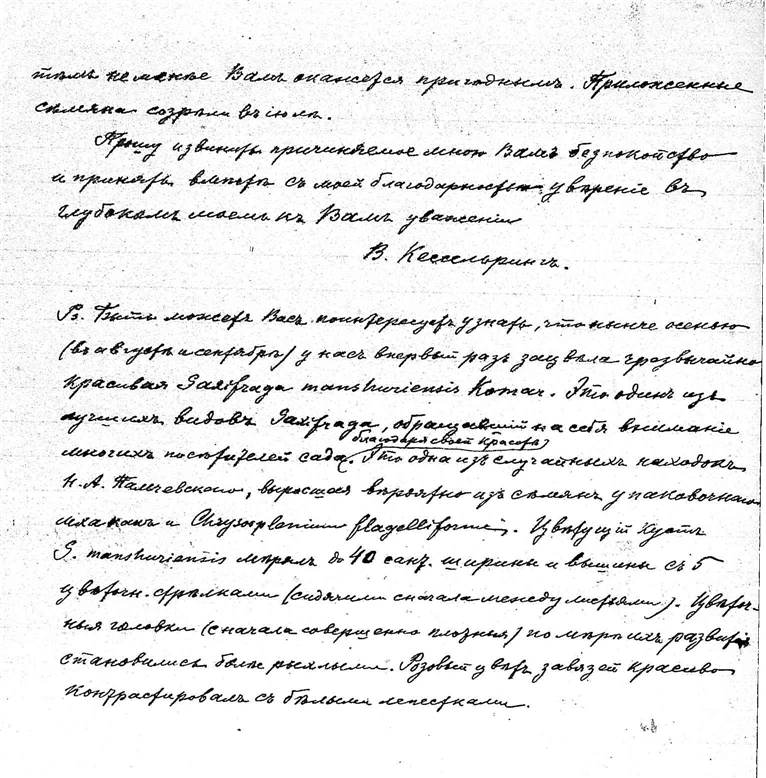 тѣмъ не менѣе Вамъ окажется пригоднымъ. Приложенные
сѣмяна созрѣли въ іюлѣ.
Прошу извинить причиняемое мною Вамъ безпокойство
и принять вмѣстѣ съ моей благодарностью увѣреніе въ
глубокомъ моемъ къ Вамъ уваженіи
В. Кессельрингъ.
Ps. Быть можетъ Васъ поинтересуетъ узнать, что нынче осенью
(въ августѣ и сентябрѣ) у насъ впервый разъ зацвѣла чрезвычайно
красивая Saxifraga manshuriensis Komar. Это одинъ изъ
лучшихъ видовъ Saxifraga, обращавшій на себя вниманіе
благодаря своей красотѣ
многихъ посѣтителей сада. Это одна изъ случайныхъ находокъ
Н. А. Пальчевскаго, выросшая вѣроятно изъ сѣмянъ упаковочнаго
мха какъ и Chrysosplenium flagelliforme. Цвѣтущій кустъ
S. manshuriensis мѣрялъ до 40 сант. ширины и вышины съ 5
цвѣточн. стрѣлками (сидячими сначала между листьями). Цвѣточ-
ныя головки (сначала совершенно плотныя) по мѣрѣ ихъ развитія
становились болѣе рыхлыми. Розовый цвѣтъ завязей красиво
контрастировалъ съ бѣлыми лепестками.